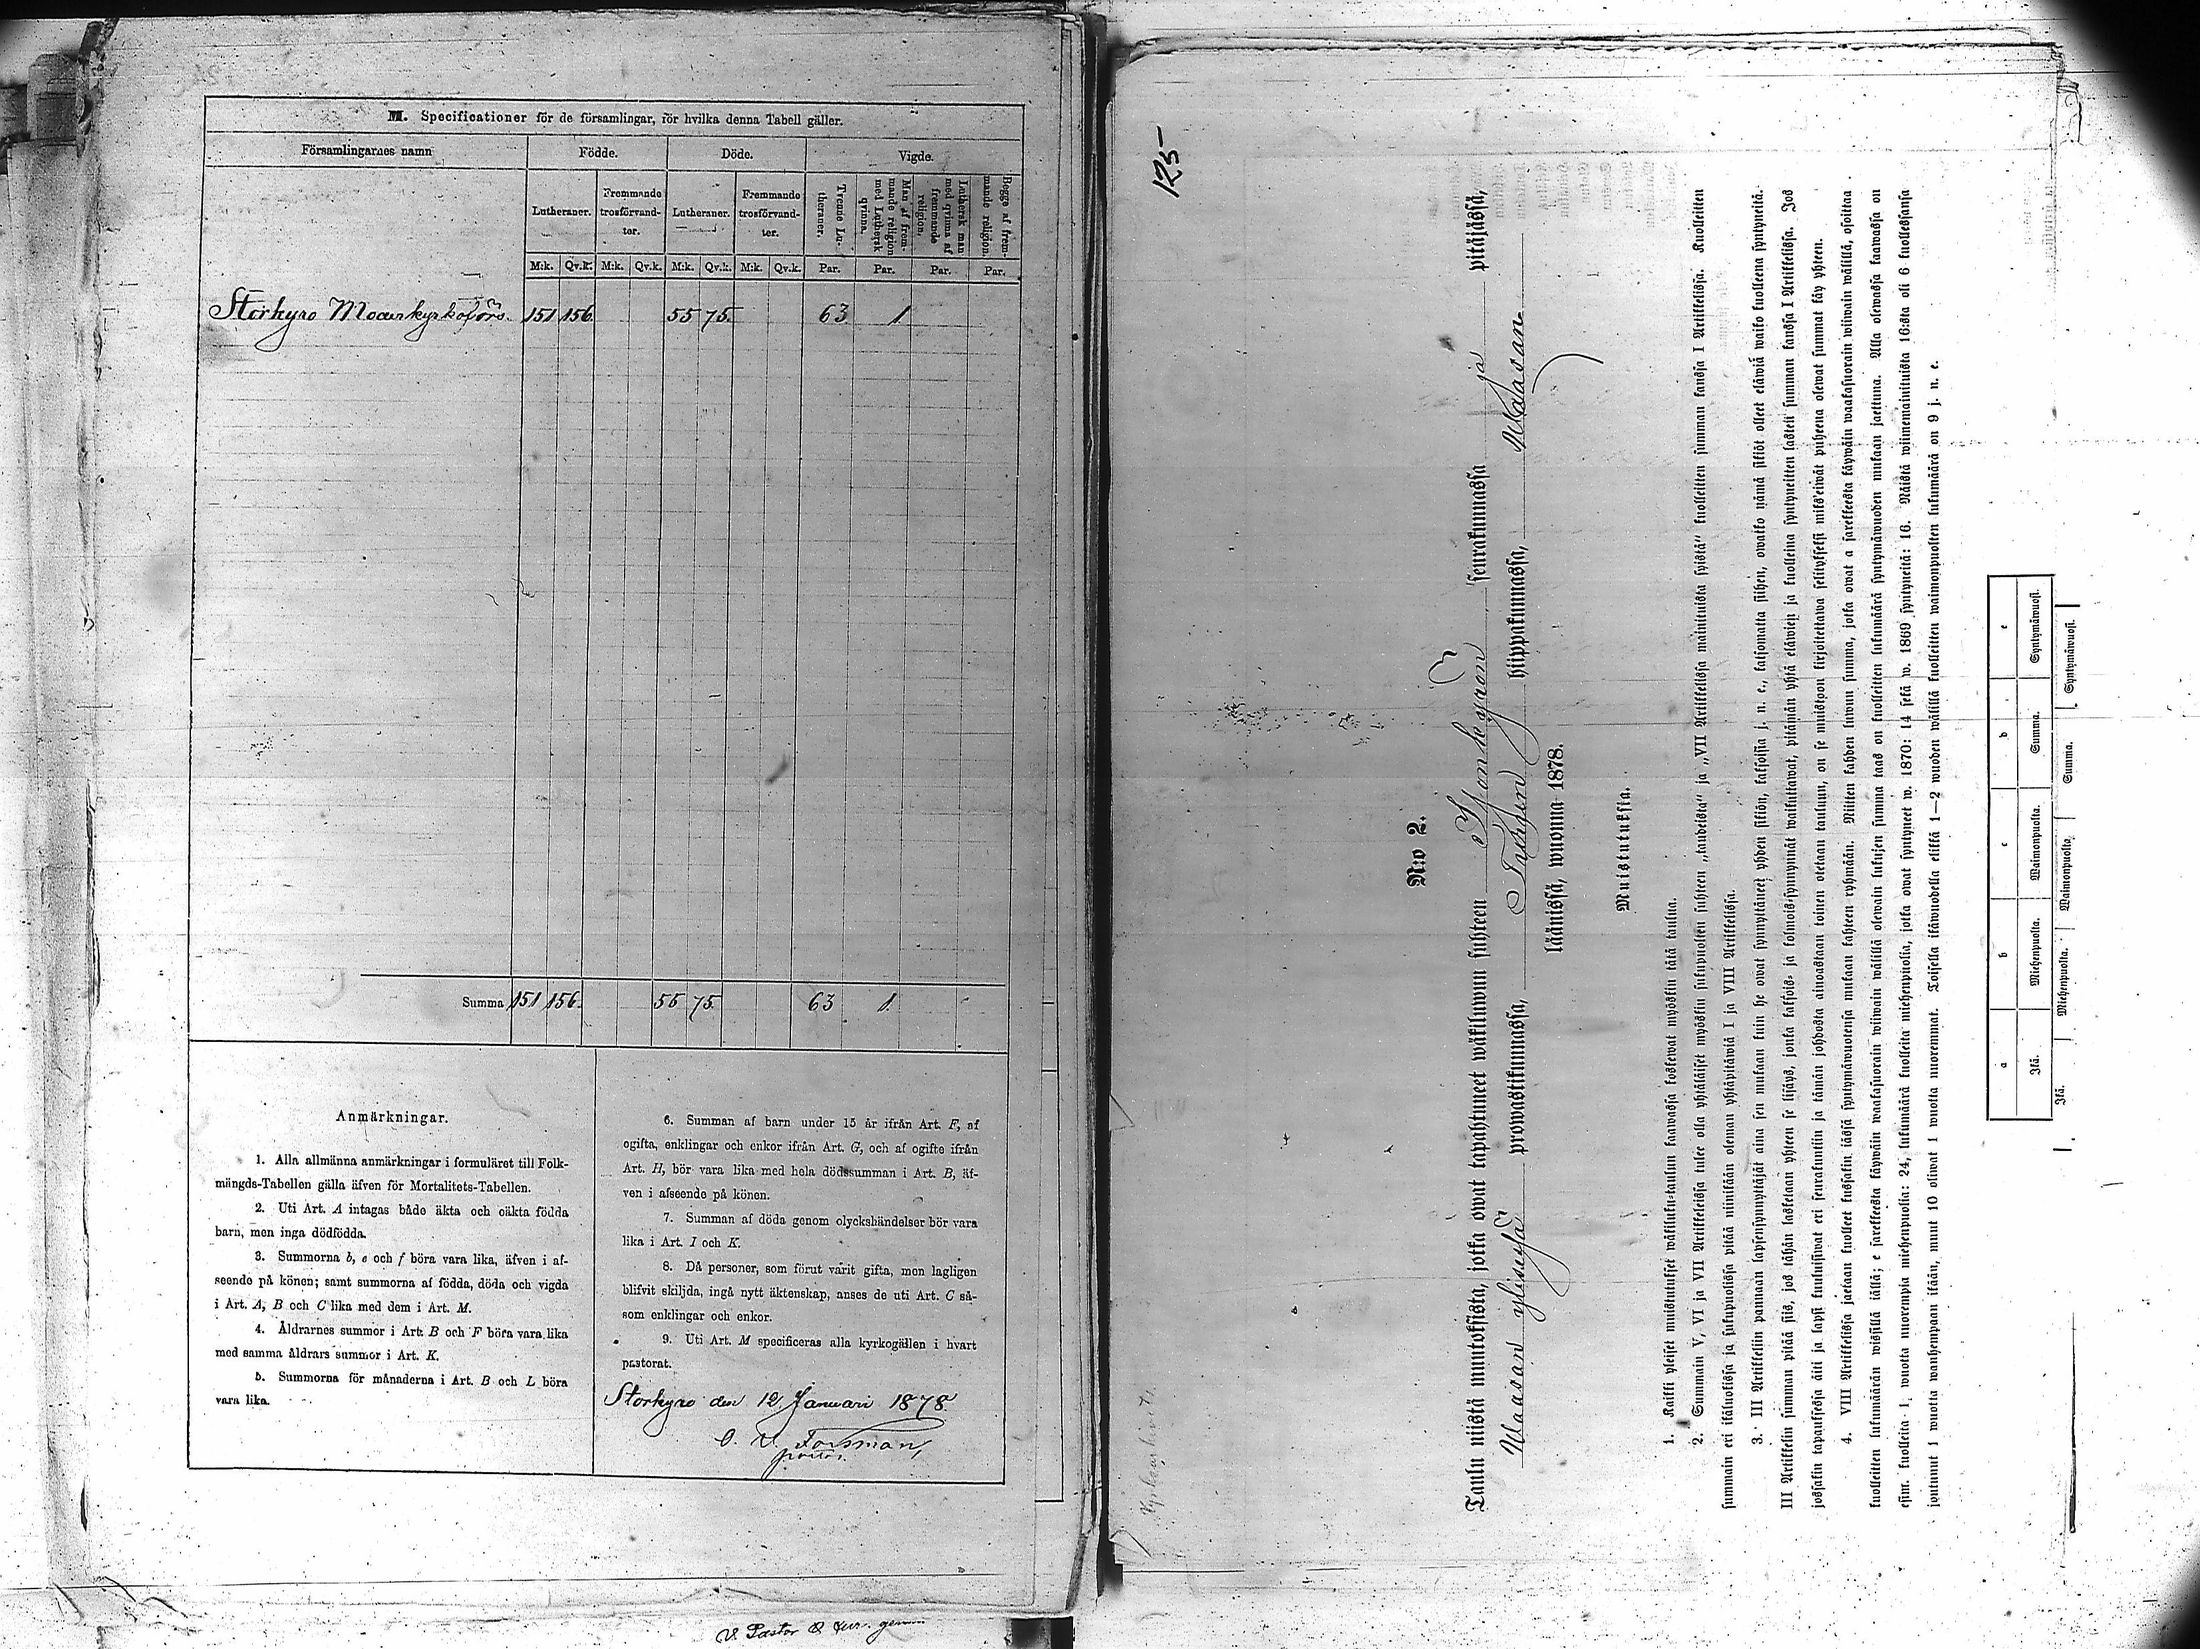 M. Specificationer för de församlingar, för hvilka denna Tabell gäller.
Församlingarnes namn
Födde.
Döde.
Vigde.
Lutheraner.
Fremmande trosförvandter.
Lutheraner.
Fremmande trosförvandter.
Trenne Lutheraner.
Man af fremmande religion med Luthersk qvinna.
Luthersk man med qvinna af fremmande religion.
Begge af fremmande religion.
M:k. Qv.k. M:k. Qv.k. M:k. Qv.k. M:k. Qv.k. Par. Par. Par. Par.
Storkyro Moderkyrkoförs. 151 156. 55 75. 63 1
Summa 151 156. 55 75. 63 1.
Anmärkningar.
1. Alla allmänna anmärkningar i formuläret till Folk-
mängds-Tabellen gälla äfven för Mortalitets-Tabellen.
2. Uti Art. A intagas både äkta och oäkta födda
barn, men inga dödfödda.
3. Summorna b, e och f böra vara lika, äfven i af-
seende på könen; samt summorna af födda, döda och vigda
i Art. A, B och C lika med dem i Art. M.
4. Åldrarnes summor i Art. B och F böra vara lika
med samma åldrars summor i Art. K.
5. Summorna för månaderna i Art. B och L böra
vara lika.
6. Summan af barn under 15 år ifrån Art. F, af
ogifta, enklingar och enkor ifrån Art. G, och af ogifte ifrån
Art. H, bör vara lika med hela dödssumman i Art. B, äf-
ven i afseende på könen.
7. Summan af döda genom olyckshändelser bör vara
lika i Art. I och K.
8. Då personer, som förut varit gifta, men lagligen
blifvit skiljda, ingå nytt äktenskap, anses de uti Art. C så-
som enklingar och enkor.
9. Uti Art. M specificeras alla kyrkogällen i hvart
pastorat.
Storkyro den 12 Januari 1878
Forsman,
V. Pastor
125
N:o 2.
Taulu niistä muutoksista, jotka owat tapahtuneet wäkiluwun suhteen Isonkyrön seurakunnassa ja pitäjässä,
Waasan yliseysä prowastikunnassa, Turun hiippakunnassa, Waasan
läänissä, wuonna 1878.
Muistutuksia.
1. Kaikki yleiset muistutukset wäkiluku-taulun kaawassa koskewat myöskin tätä taulua.
2. Summain V, VI ja VII Artikkeleissa tulee olla yhtäläiset myöskin sukupuolten suhteen „taudeista“ ja „VII Artikkelissa mainituista syistä“ kuolleitten summan kanssa I Artikkelissa. Kuolleitten
summain eri ikäluokissa ja sukupuolissa pitää niinikään oleman yhtäpitäwiä I ja VIII Artikkelissa.
3. III Artikkeliin pannaan lapsensynnyttäjät aina sen mukaan kuin he owat synnyttäneet yhden sikiön, kaksoisia j. n. e., katsomatta siihen, owatko nämä sikiöt olleet eläwiä waiko kuolleena syntyneitä.
III Artikkelin summan pitää siis, jos tähän lasketaan yhteen se lisäys, jonka kaksois- ja kolmois-synnynnät waikuttawat, pitämän yhtä eläwien ja kuolleina syntyneitten lasten summan kanssa I Artikkelissa. Jos
jossakin tapauksessa äiti ja lapsi kuuluisiwat eri seurakuntiin ja tämän johdosta ainoastaan toinen otetaan tauluun, on se muistoon kirjoitettawa selitykseksi miks'eiwät puheena olewat summat käy yhteen.
4. VIII Artikkelissa jaetaan kuolleet kussakin iässä syntymäwuotensa mukaan kahteen ryhmään. Niitten kahden luwun summa, jotka owat a sarekkeesta käywäin waakasuorain wiiwain wälillä, osoittaa
kuolleitten lukumäärän wissillä iällä; e sarekkeesta käywäin waakasuorain wiiwain wälillä olewain lukujen summa taas on kuolleitten lukumäärä syntymäwuoden mukaan jaettuna. Alla olewassa kaawassa on
esim. kuolleita 1 wuotta nuorempia miehenpuolia: 24, lukumäärä kuolleita miehenpuolia, jotka owat syntyneet w. 1870: 14 sekä w. 1869 syntyneitä: 16. Näistä wiimemainituista 16:sta oli 6 kuollessansa
joutunut 1 wuotta wanhempaan ikään, muut 10 oliwat 1 wuotta nuoremmat. Toisella ikäwuodella elikkä 1—2 wuoden wälillä kuolleitten waimonpuolten lukumäärä on 9 j. n. e.
a b c b e
Ikä. Miehenpuolta. Waimonpuolta. Summa. Syntymäwuosi.
Ikä. Miehenpuolta. Waimonpuolta. Summa. Syntymäwuosi.